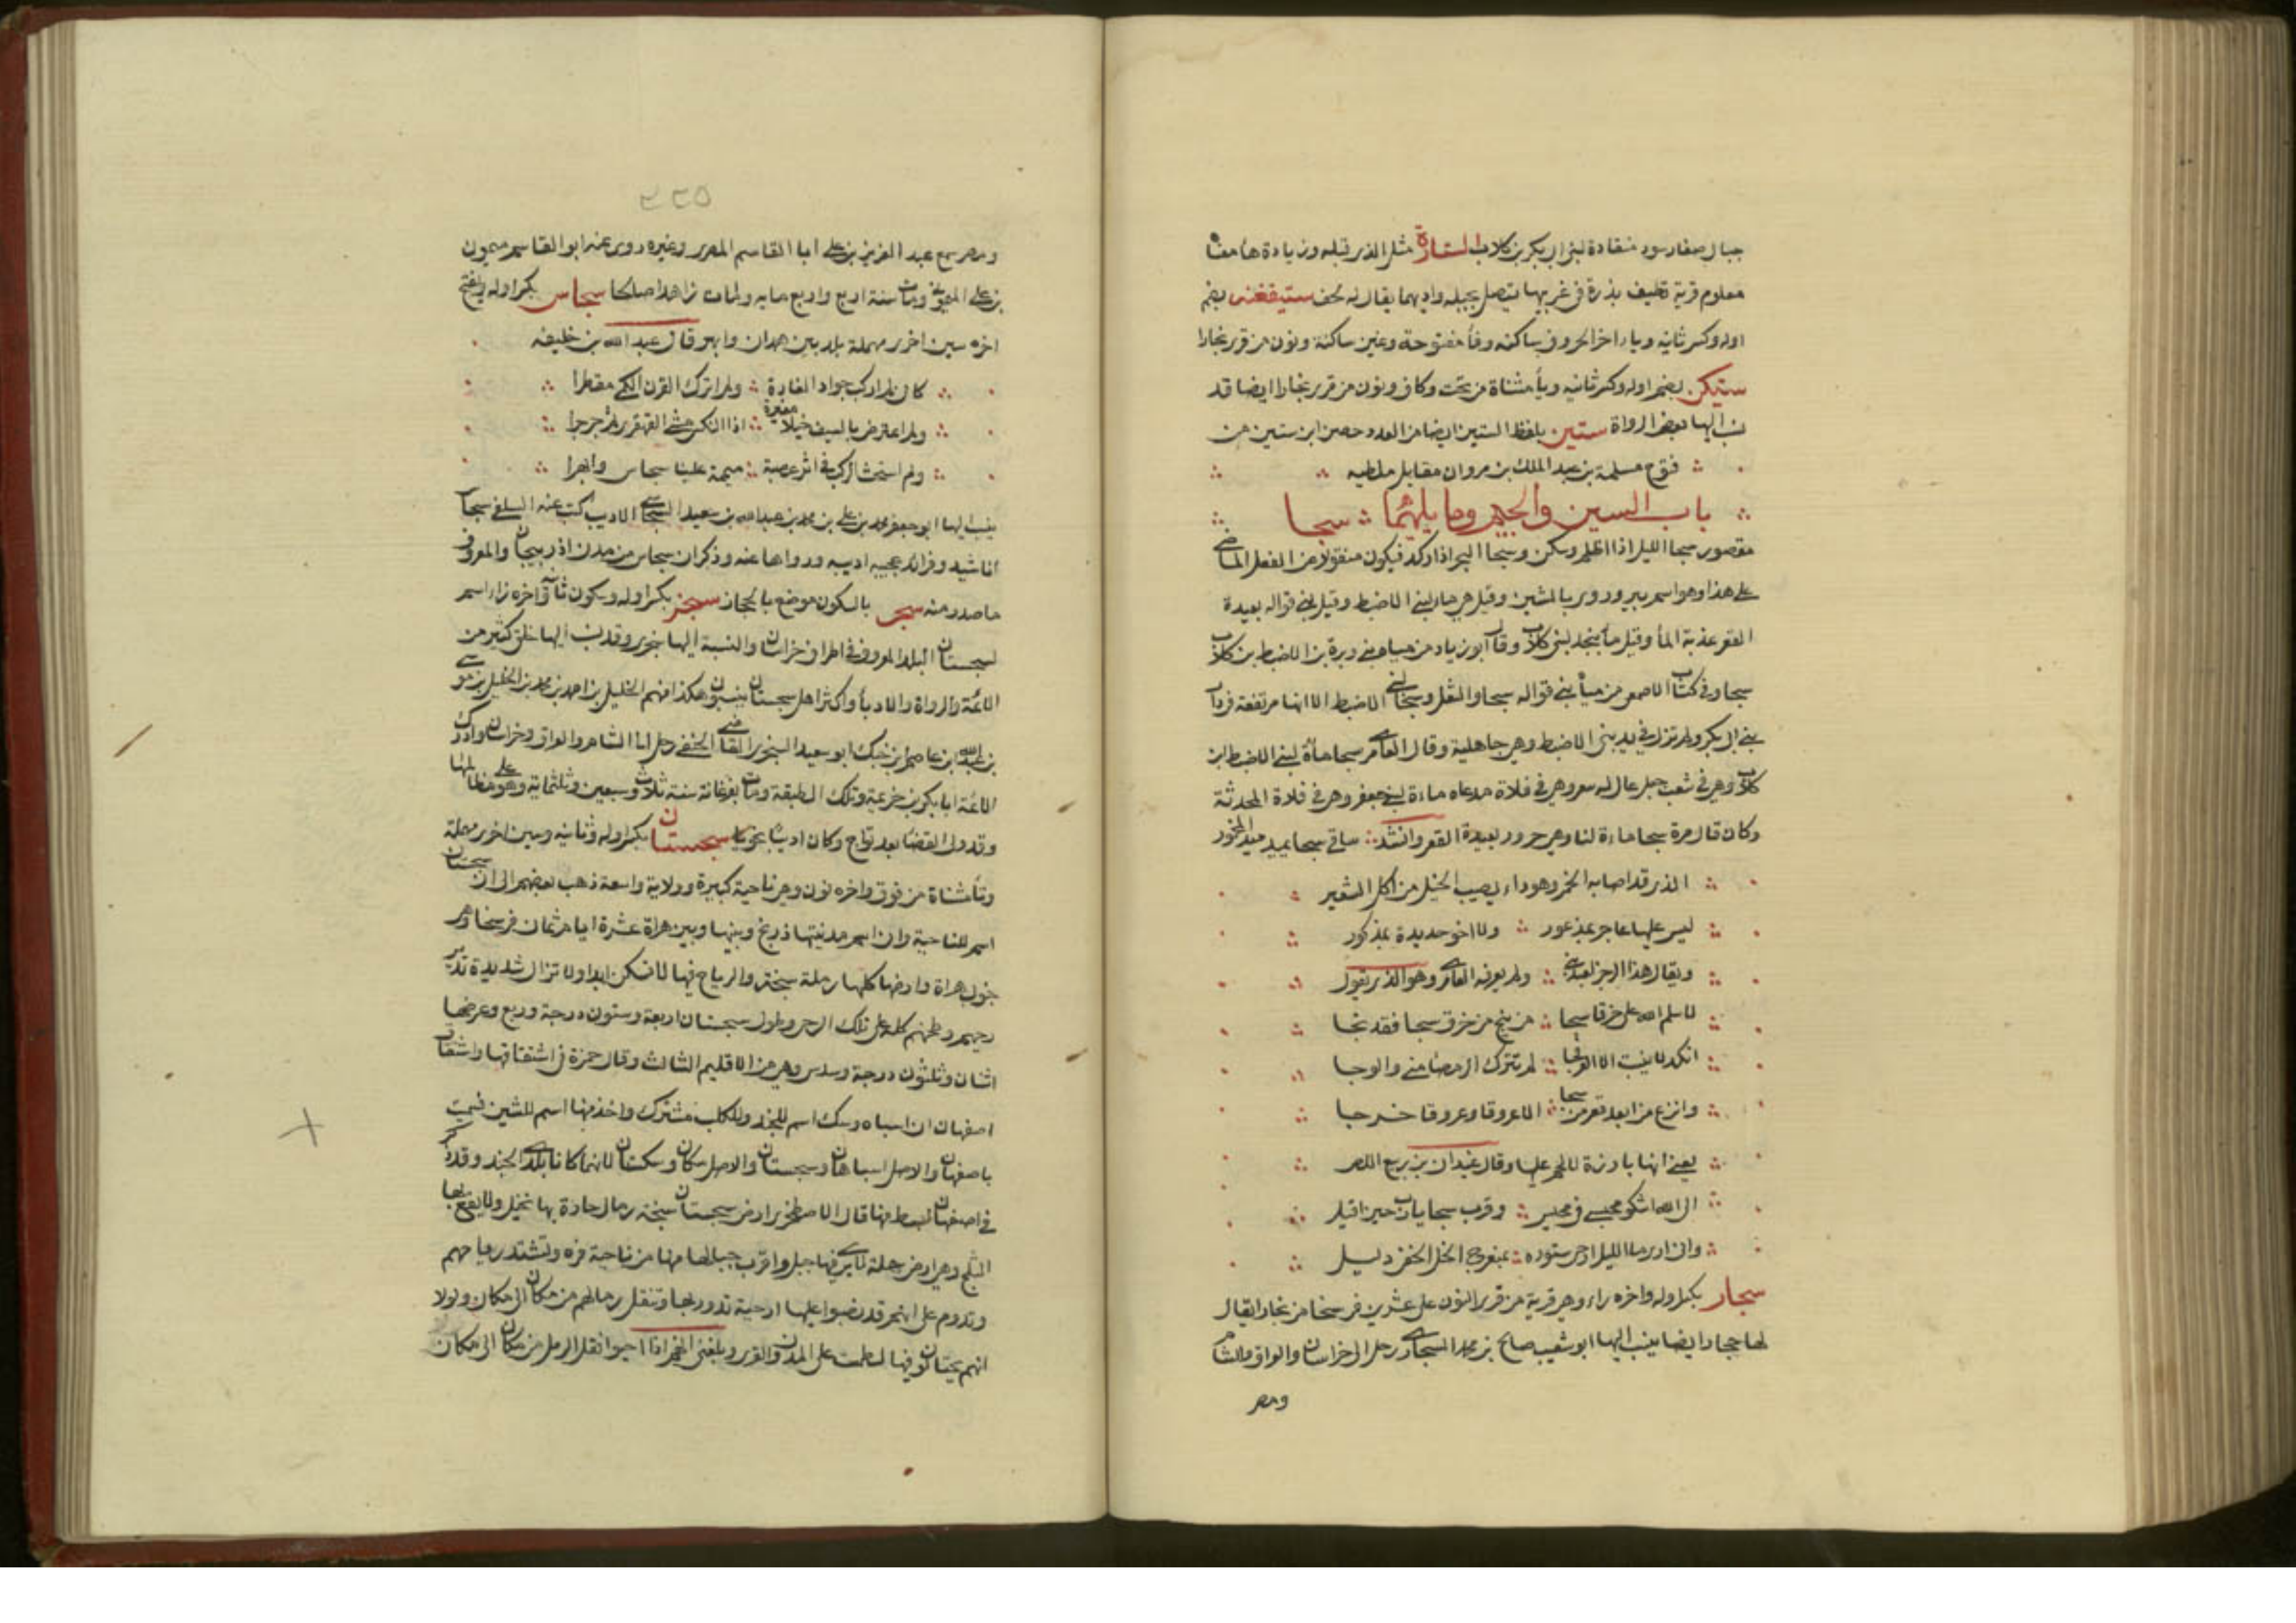 جبال صغار سود منقادة لبنى ابى بكر بن كلاب الستارة مثل الذى قبله وزيادة هاء معناه
معلوم قرية تطيف بذرة فى غربيها يتصل بجبله واديهما يقال له لحف ستيفغنى بضم
اوله وكسر ثانيه وياء اخر الحروف ساكنه وفأ مفتوحة وغين ساكنة ونون من قرى بخارا
ستيكن بضم اوله وكسر ثانيه ويأ مثناة من تحت وكاف ونون من قرى بخارا ايضا قد
نسب اليها بعض الرواة ستين بلفظ الستين ايضا من العدد حصن ابن ستين من
فتوح مسلمة بن عبد الملك بن مروان مقابل ملطيه
باب السين والجيم وما يليهما سجا
مقصور سجا الليل اذا اظلم وسكن وسجا البحر اذا ركد فيكون منقولا من الفعل الماضى
على هذا وهو اسم بير وروى بالشين وقيل هى ماء لبنى الاضبط وقيل لبنى قواله بعيدة
القعر عذبة المأ وقيل مأ بنجد لبنى كلاب وقال ابو زياد من مياه بنى وبرة بن الاضبط بن كلاب
سجا وفى كتاب الاصمعى من مياه بنى قواله سجا والثعل وسجا لبنى الاضبط الا انها مرتفعة فى ديار
بنى ابى بكر ولم تزل فى يد بنى الاضبط وهى جاهلية وقال العامرى سجا ماءة لبنى الاضبط ابن
كلاب وهى فى شعب جبل عال له سعر وهى فى فلاة مدعاه ماءة لبنى جعفر وهى فى فلاة المحدثة
وكان قال مرة سجا ماءة لنا وهى جرور بعيدة القعر وانشد ساقى سجا يميد ميد المخمور
الذى قد اصابه الخمر وهو داء يصيب الخيل من اكل الشعير
ليس عليها عاجز بمذعور ولا اخو حديدة بمذكور
ويقال هذا الرجز لعدنى ولم يعرفه العامرى وهو الذى يقول
لا سلم الله على خرقا سجا من ينج من خرق سجا فقد نجا
انكد لا ينبت الا العرفجا لم تترك الرمضا منى والوجا
وانزع من ابعد قعر من سجا الا عروقا وعروقا خرجا
يعنى انها بارزة لا لحم عليها وقال غيدان بن ربيع اللص
الى الله اشكو محبسى فى مخيس وقرب سجا يارب حين اقيل
وانى اذا ما الليل ارخى ستوره بمنعرج الخل الخفى دليل
سجار بكسر اوله واخره راء وهى قرية من قرى النور على عشرين فرسخا من بخارا يقال
لها ججار ايضا ينسب اليها ابو شعيب صالح بن محمد السجارى رحل الى خراسان والعراق والشام
ومصر
٢٢٥
ومصر سمع عبد العزيز بن على ابا القاسم المصرى وغيره روى عنه ابو القاسم ميمون
بن على الميمونى ومات سنة اربع واربع مايه وكان زاهدا صالحا سجاس بكسر اوله ويفتح
اخره سين اخرى مهملة بلد بين همدان وابهر وقال عبد الله بن خليفه
كان لم اركب جوادا لغارة ولم اترك القرن الكمى مقطرا
ولم اعترض بالسيف خيلا مغيرة اذا النكس مشى القهقرى ثم جرجرا
ولم استحث الركب فى اثر عصبة ميممة عليا سجاس وابهرا
ينسب اليها ابو جعفر محمد بن على بن محمد بن عبد الله بن سعيد السجاسى الاديب كتب عنه السلفى بسجاس
اناشيد وفرائد عجيبه ادبيه ورواها عنه وذكر ان سجاس من مدن اذربيجان والمعروف
ما صدر منه سجر بالسكون موضع بالحجاز سجز بكسر اوله وسكون ثانيه واخره زاء اسم
لسجستان البلد المعروف فى اطراف خراسان والنسبة اليها سجزى وقد نسب اليها خلق كثير من
الائمة والرواة والادبأ واكثر اهل سجستان ينسبون هكذا منهم الخليل بن احمد بن محمد بن الخليل بن موسى
بن عبد الله ابن عاصم ابن جنك ابو سعيد السجزى القاضى الحنفى رحل الى الشام والعراق وخراسان وادرك
الائمة ابا بكر بن خزيمة وتلك الطبقة ومات بفرغانة سنة ثلاث وسبعين وثلثماية وهو على مظالمها
وقد ولى القضا بعد نواح وكان اديبا نحويا سجستان بكسر اوله وثانيه وسين اخرى مهملة
وتأ مثناة من فوق واخره نون وهى ناحية كبيرة وولاية واسعة ذهب بعضهم الى ان سجستان
اسم للناحية وان اسم مدينتها زرنج وبينها وبين هراة عشرة ايام ثمان فرسخا وهى
جنوب هراة وارضها كلها رملة سبخة والرياح فيها لا تسكن ابدا ولا تزال شديدة تدير
رحيهم وطحنهم كله على تلك الرحى وطول سجستان اربعة وستون درجة وربع وعرضها
اثنان وثلثون درجة وسدس وهى من الاقليم الثالث وقال حمزة فى اشتقاقها واشتقاق
اصفهان ان اسباه وسك اسم للجند وللكلب مشترك واخذ منها اسم للشين فسميت
باصفهان والاصل اسباهان وسجستان والاصل سكان وسكستان لانهما كانا بلدى الجند وقد ذكر
فى اصفهان ابسط منها قال الاصطخرى ارض سجستان سبخة رمال حارة بها نخيل ولا يقع بها
الثلج وهى ارض سهلة لا يرى فيها جبل واقرب جبالها منها من ناحية فره وتشتد رياحهم
وتدوم على انهم قد نصبوا عليها ارحية تدور بها وتنقل رمالهم من مكان الى مكان ولولا
انهم يحتالون فيها لطمست على المدن والقرى وبلغنى انهم اذا احبوا نقل الرمل من مكان الى مكان